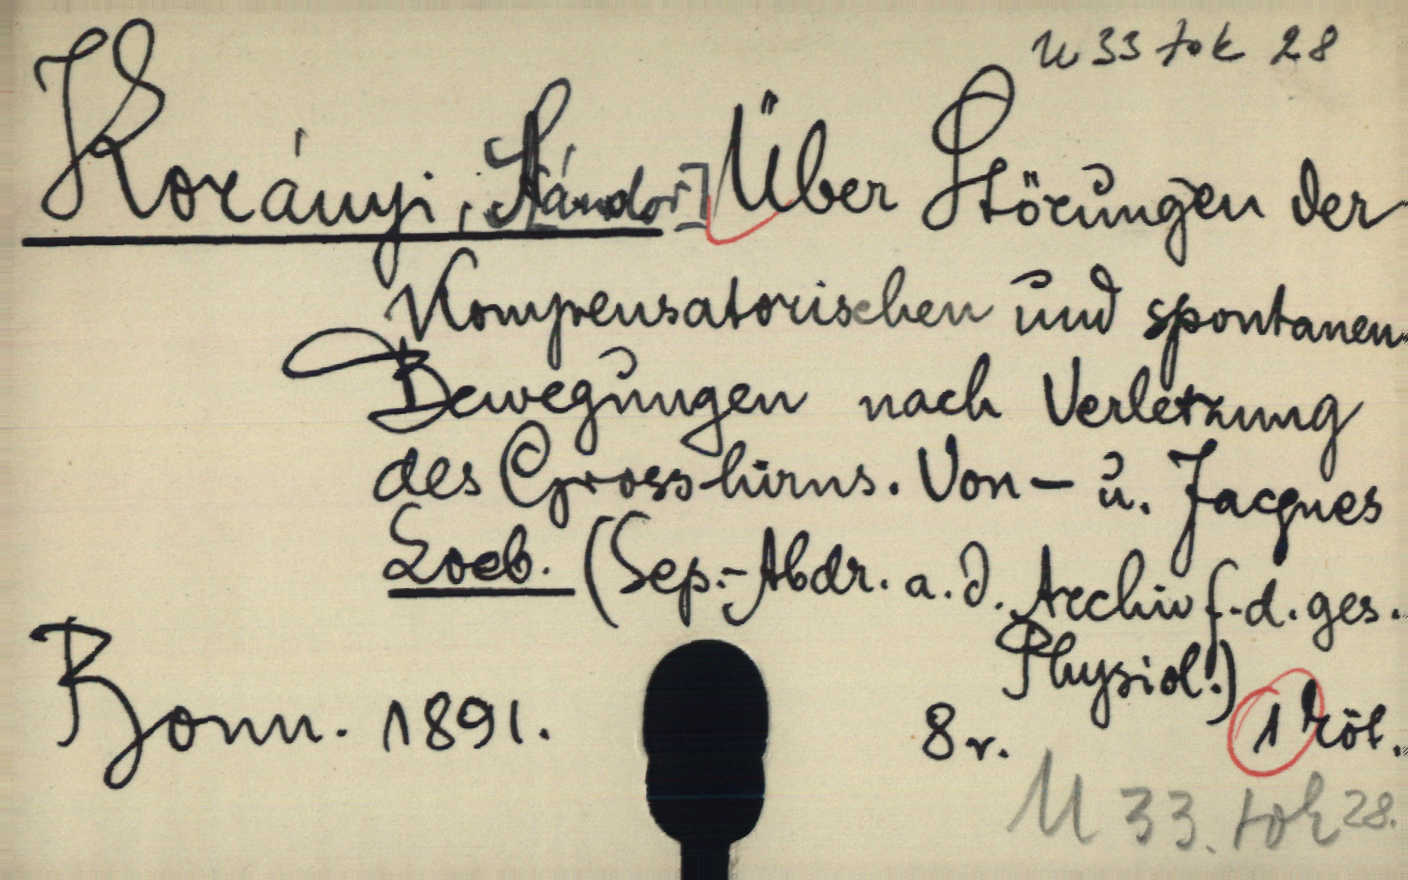 U 33 tok 28
Korányi, [Sándor] Über Störungen der
Kompensatorischen und spontanen
Bewegungen nach Verletzung
des Grosshirns. Von – u. Jacques
Loeb. (Sep.-Abdr. a. d. Archiv f. d. ges.
Physiol.)
Bonn. 1891. 8r. 1 köt.
U 33. tok 28.